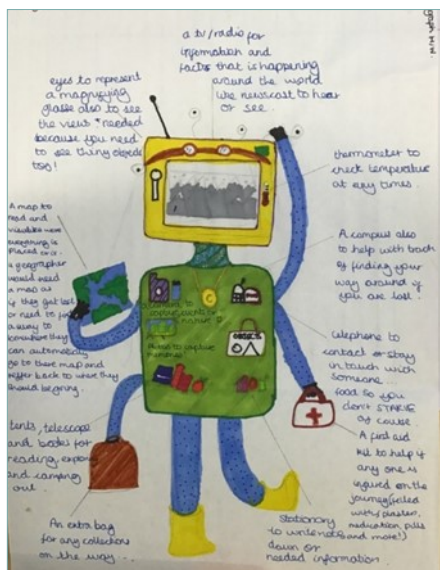 a tv/radio for
information and
facts that is happening
around the world
like newscast to hear
or see.
eyes to represent
a magnifying
glasse also to see
the view *needed
because you need
to see thing objects
too!
thermometer to
check temperature
at any times.
A map to
read and
visualise were
everything is
placed or a
geographer
would need
a map as
if they get lost
or need to find
a way to
somewhere they
can automaticly
go to there map and
reffer back to where they
should be going.
A campus also
to help with track
of finding your
way around if
you are lost.
to
capture events or
native
to capture
OBJECTS
telephone to
contact or stay
in touch with
someone...
food so you
don't STARVE
of course.
A first aid
kit to help if
any one is
injured on the
journey (filled
with plasters,
medication, pills
and more!)
tents, telescope
and books for
reading, explore
and camping
out.
An extra bag
for any collections
on the way...
Stationary
to write notes
down or
needed information.